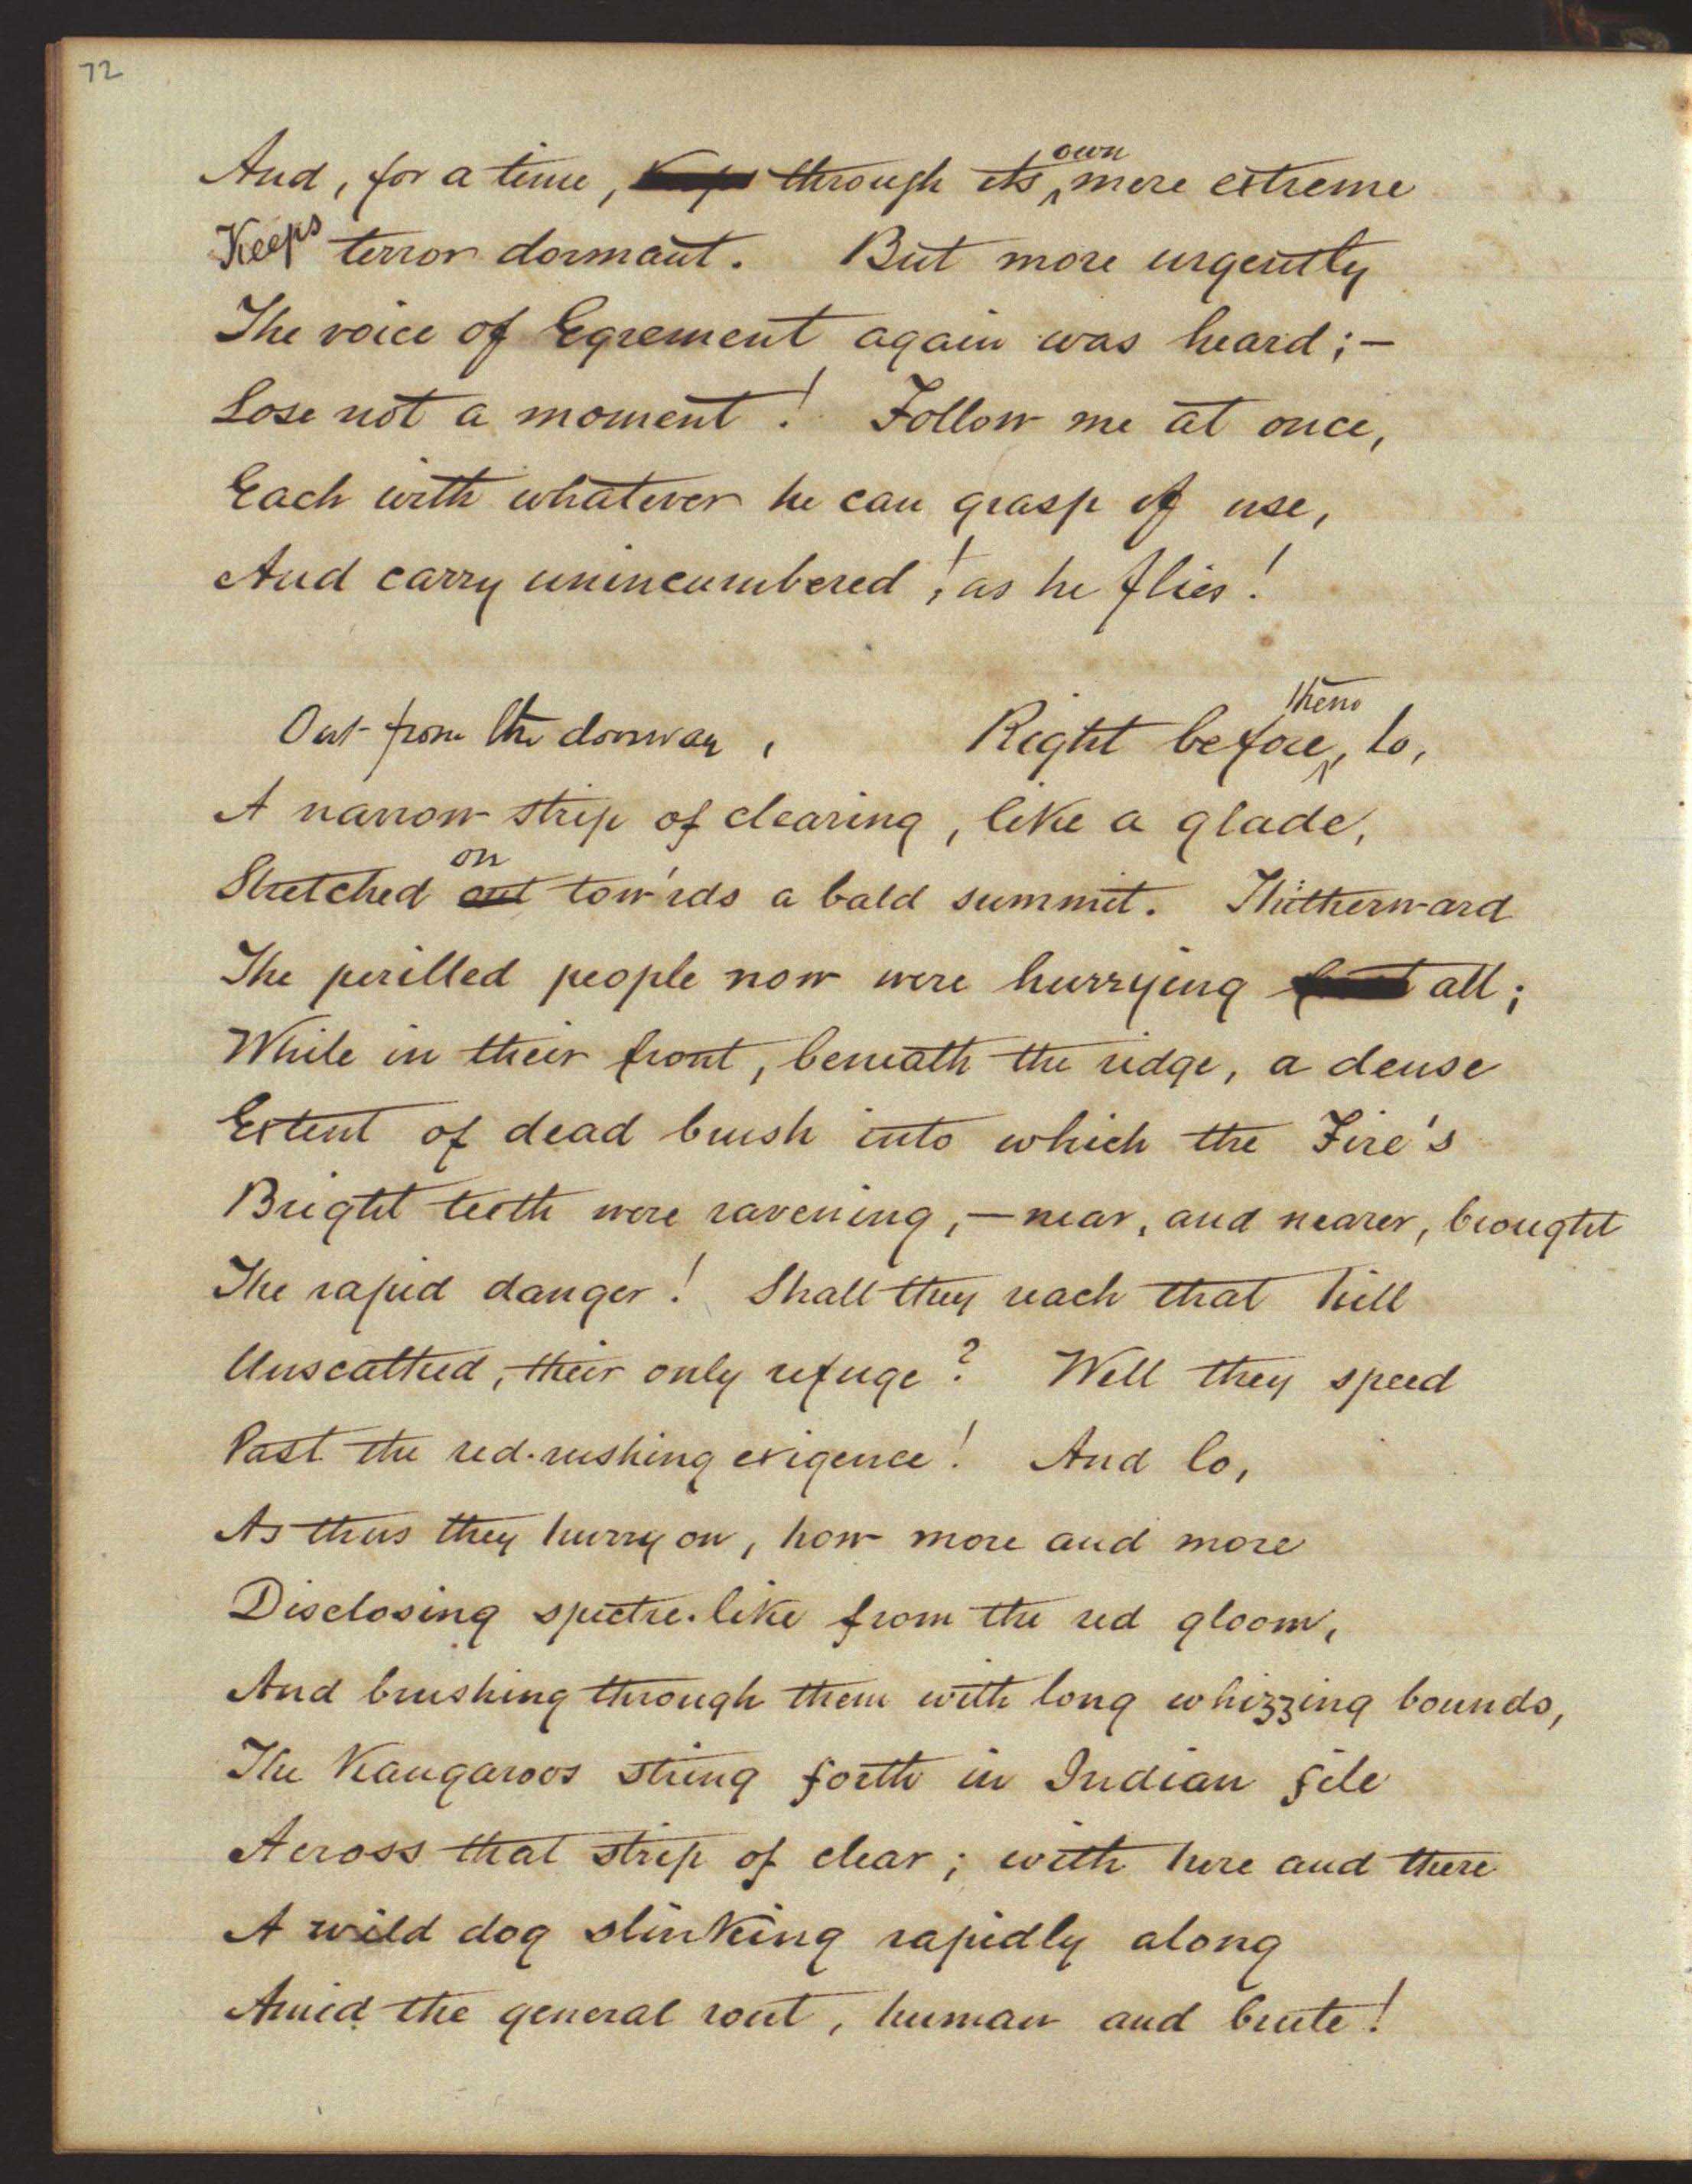 72
And, for a time, Keeps through its own mere extreme
Keeps terror dormant. But more urgently
The voice of Egrement again was heard;—
Lose not a moment! Follow me at once,
Each with whatever he can grasp of use,
And carry unincumbered, as he flies!
Out from the doorway, Right before them, lo,
A narrow strip of clearing, like a glade,
Stretched out on tow'rds a bald summit. Thitherward
The perilled people now were hurrying all;
While in their front, beneath the ridge, a dense
Extent of dead brush into which the Fire's
Bright teeth were ravening,—near, and nearer, brought
The rapid danger! Shall they reach that hill
Unscathed, their only refuge? Well they speed
Past the red-rushing exigence! And lo,
As thus they hurry on, how more and more
Disclosing spectre-like from the red gloom,
And brushing through them with long whizzing bounds,
The Kangaroos string forth in Indian file
Across that strip of clear; with here and there
A wild dog slinking rapidly along
Amid the general rout, human and brute!